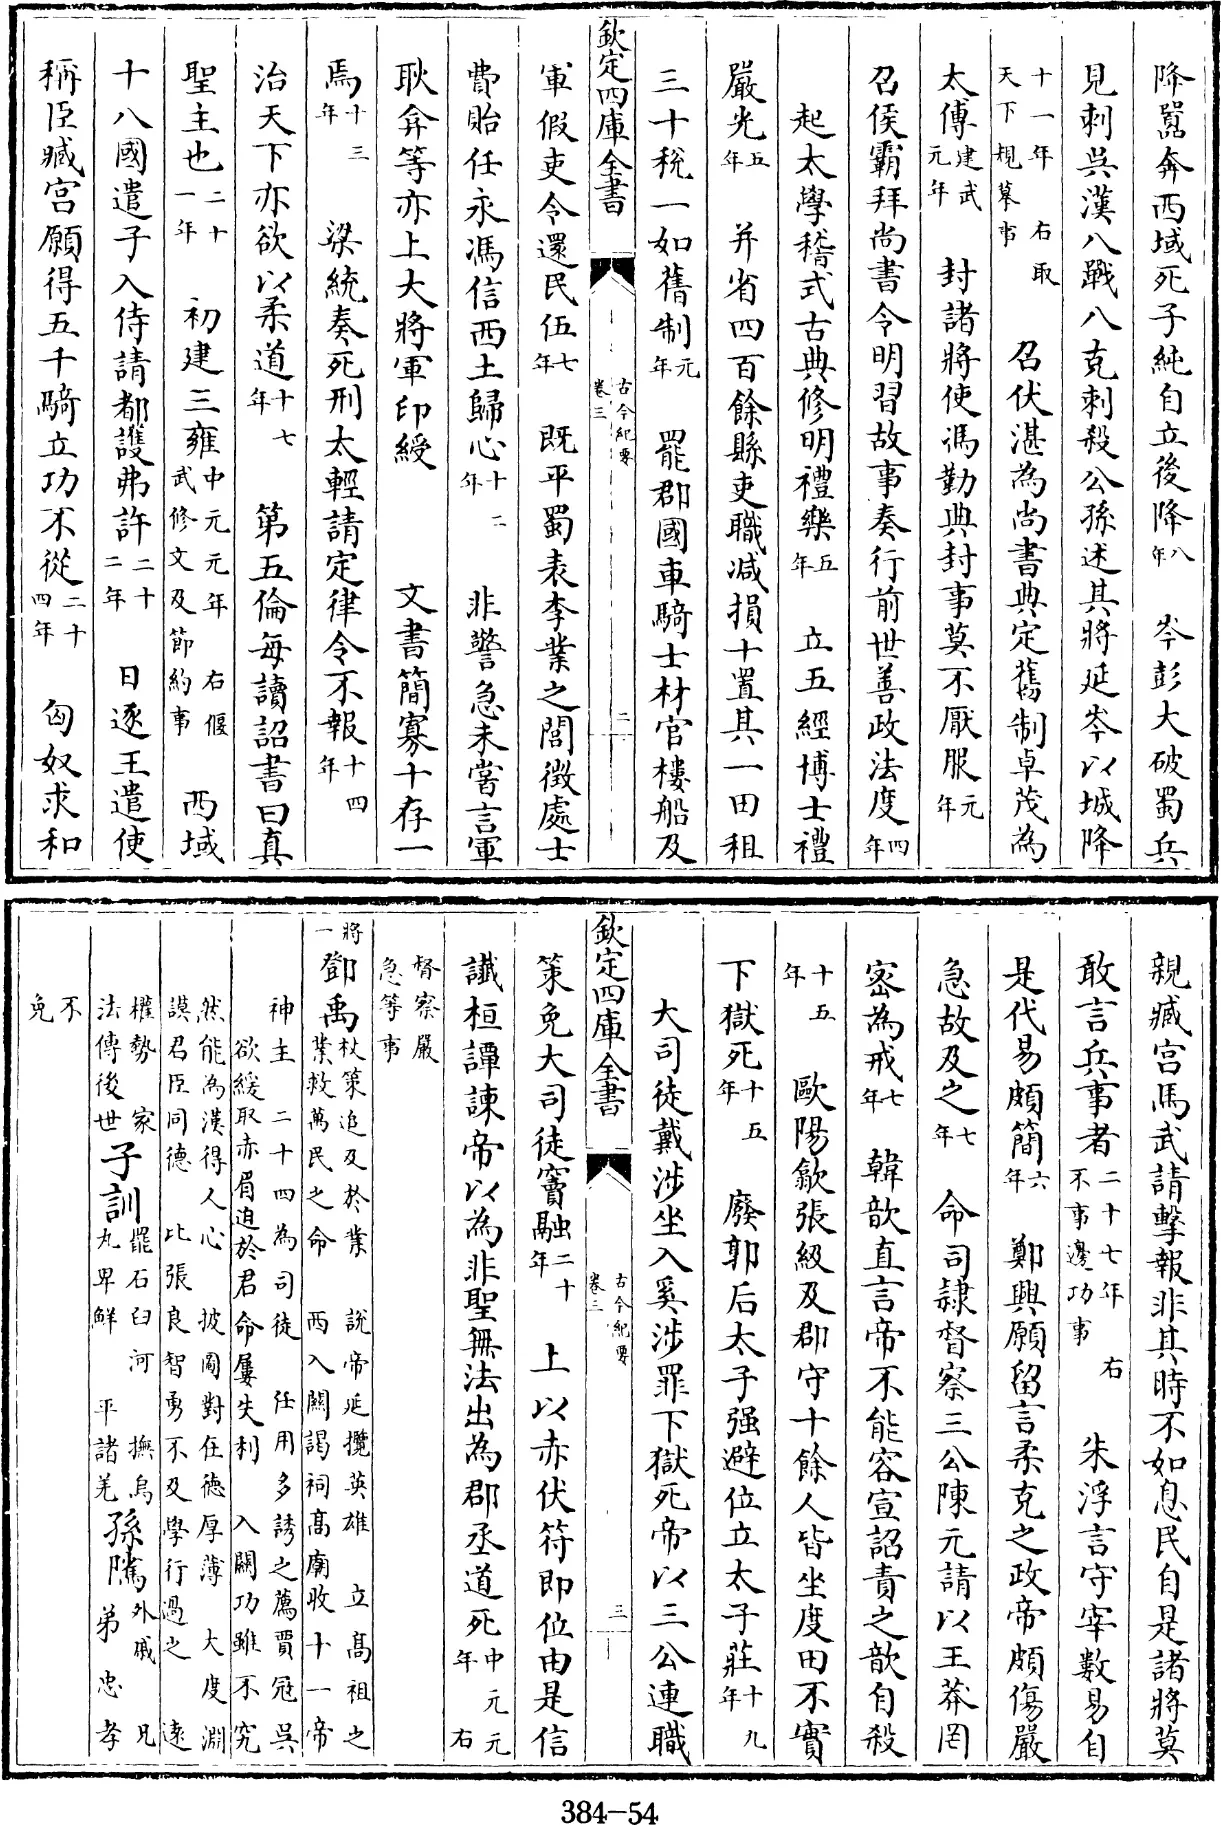 降囂奔西域死子純自立後降八年　岑彭大破蜀兵
見刺吳漢八戰八克刺殺公孫述其將延岑以城降
十一年　右取天下規摹事　召伏湛為尚書典定舊制卓茂為
太傅建武元年　封諸將使馮勤典封事莫不厭服元年
召侯霸拜尚書令明習故事奏行前世善政法度四年
起太學稽式古典修明禮樂五年　立五經博士禮
嚴光五年　并省四百餘縣吏職減損十置其一田租
三十稅一如舊制元年　罷郡國車騎士材官樓船及
欽定四庫全書　古今紀要卷三　二
軍假吏令還民伍七年　既平蜀表李業之閭徵處士
費貽任永馮信西土歸心十二年　非警急未嘗言軍
耿弇等亦上大將軍印綬　文書簡寡十存一
焉十三年　梁統奏死刑太輕請定律令不報十四年
治天下亦欲以柔道十七年　第五倫每讀詔書曰真
聖主也二十一年　初建三雍中元元年　右偃武修文及節約事　西域
十八國遣子入侍請都護弗許二十二年　日逐王遣使
稱臣臧宮願得五千騎立功不從二十四年　匈奴求和
親臧宮馬武請擊報非其時不如息民自是諸將莫
敢言兵事者二十七年　右不事邊功事　朱浮言守宰數易自
是代易頗簡六年　鄭興願留言柔克之政帝頗傷嚴
急故及之七年　命司隷督察三公陳元請以王莽罔
密為戒七年　韓歆直言帝不能容宣詔責之歆自殺
十五年　歐陽歙張級及郡守十餘人皆坐度田不實
下獄死十五年　廢郭后太子强避位立太子莊十九年
大司徒戴涉坐入奚涉罪下獄死帝以三公連職
欽定四庫全書　古今紀要卷三　三
策免大司徒竇融二十年　上以赤伏符即位由是信
讖桓譚諫帝以為非聖無法出為郡丞道死中元元年　右
督察嚴急等事
將一鄧禹杖策追及於業　說帝延攬英雄　立高祖之業救萬民之命　西入關謁祠高廟收十一帝
神主　二十四為司徒　任用多誘之薦賈冦吳欲緩取赤眉迫於君命屢失利　入關功雖不究
然能為漢得人心　披圖對在德厚薄　大度淵謨君臣同德　比張良智勇不及學行過之　遠
權勢　家法傳後世子訓罷石臼河　撫烏丸卑鮮　平諸羌孫騭外戚　兄弟忠孝
不免
384-54